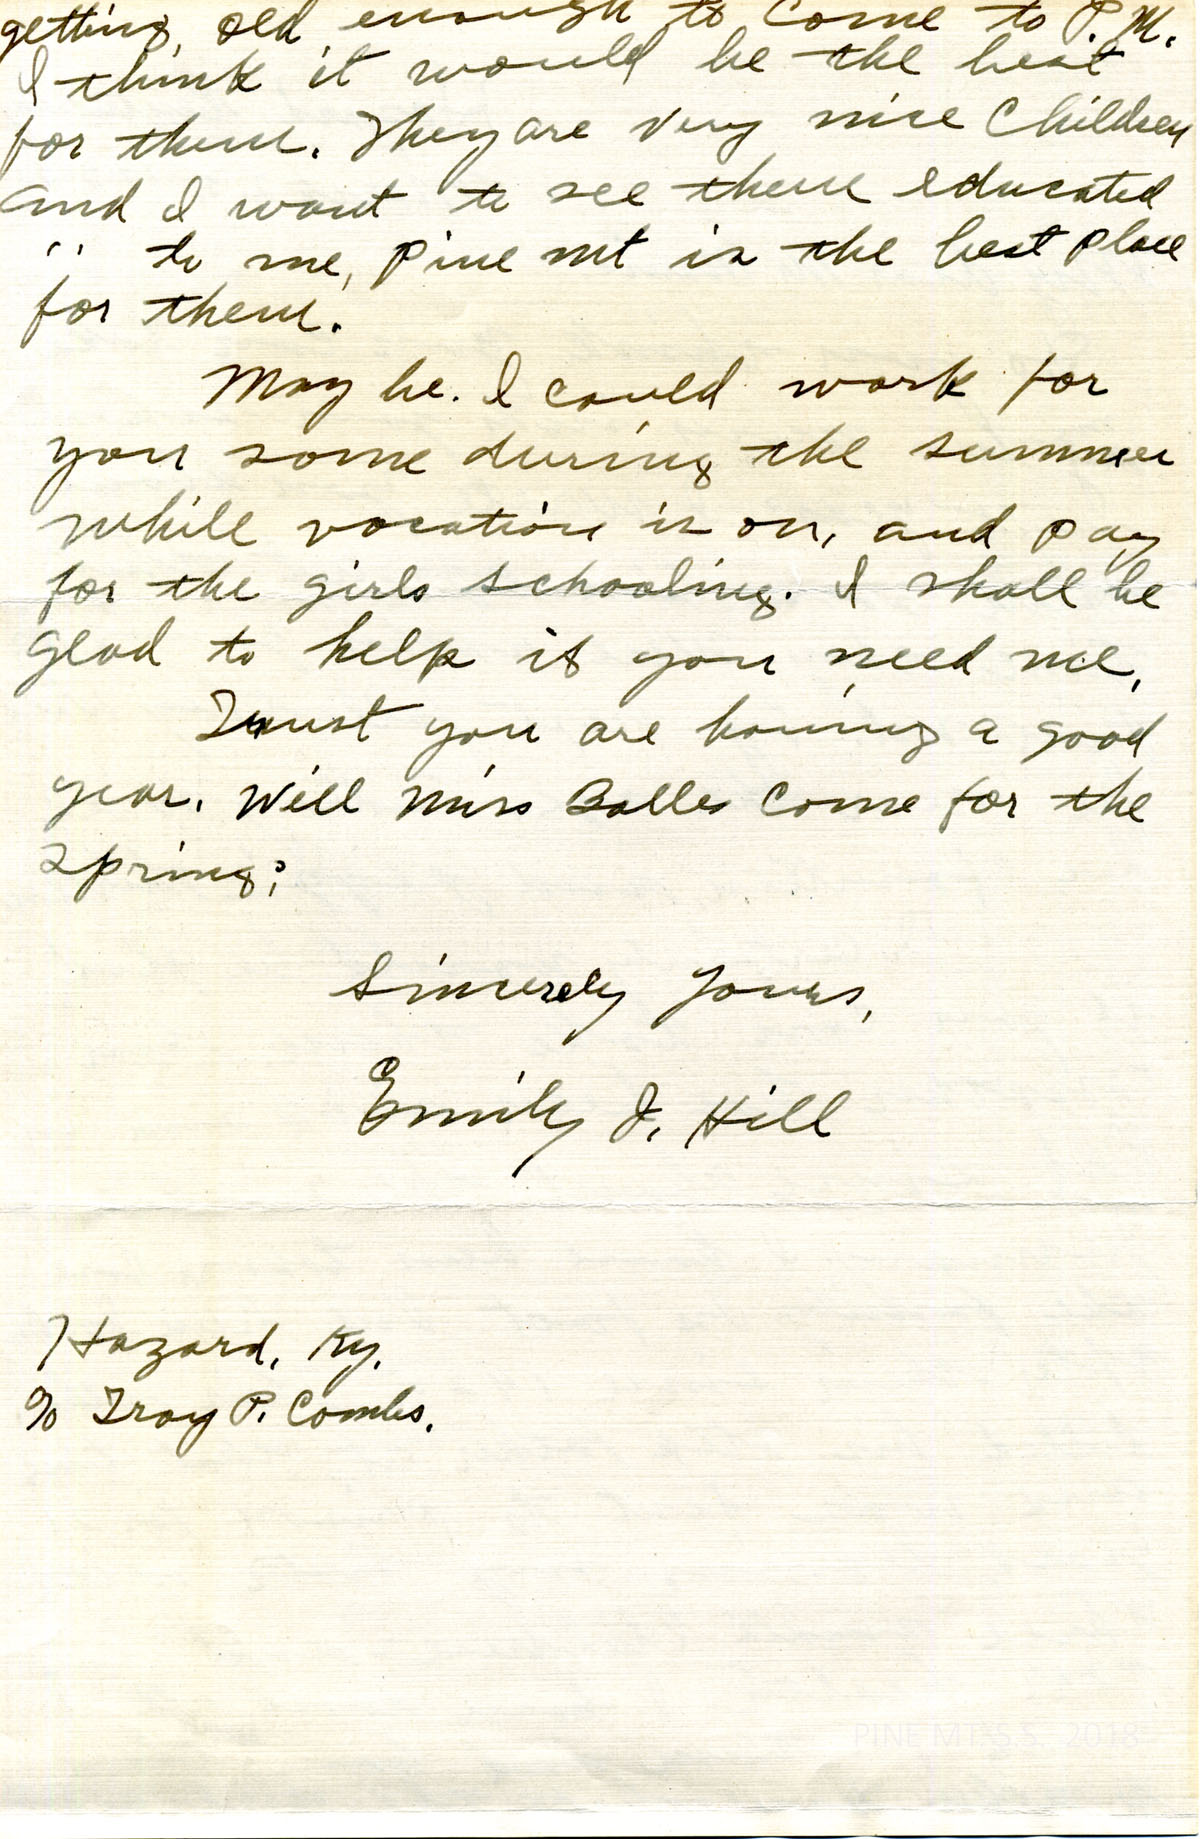 getting, old enough to come to P. M.
I think it would be the best
for them. They are very nice Children
and I want to see them educated
" to me, Pine mt is the best place
for them.
May be. I could work for
you some during the summer
while vocation is on, and pay
for the girls schooling. I shall be
glad to help if you need me,
Trust you are having a good
year. Will Miss Bolles come for the
spring?
Sincerely yours,
Emily J. Hill
Hazard, Ky.
% Troy P. Combs.
PINE MT. S.S. 2018